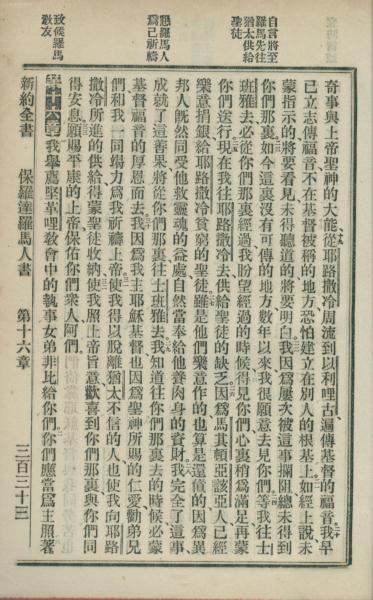 自言將至
羅馬先往
猶太供給
聖徒
懇羅馬人
爲己祈禱
致候羅馬
教友
奇事與上帝聖神的大能從耶路撒冷周流到以利哩古遍傳基督的福音我早
已立志傳福音不在基督被稱的地方恐怕建立在別人的根基上如經上說未
蒙指示的將要看見未得聽道的將要明白我因爲屢次被這事攔阻總未得到
你們那裏如今這裏沒有可傳的地方數年以來我很願意去見你們等我往士
班雅去必從你們那裏經過我盼望經過的時候得見你們心裏稍爲滿足再蒙
你們送行現在我往耶路撒冷去供給聖徒的缺乏因爲馬其頓亞該亞人已經
樂意捐銀給耶路撒冷貧窮的聖徒雖是他們樂意作的也算是還債的因爲異
邦人既然同受他救靈魂的益處自然當奉給他養肉身的資財我完全了這事
成就了這善果將從你們那裏往士班雅去我知道往你們那裏去的時候必蒙
基督福音的厚恩而去我因爲我主耶穌基督也因爲聖神所賜的仁愛勸弟兄
們和我一同竭力爲我祈禱上帝使我得以脫離猶太不信的人也使我向耶路
撒冷所進的供給得蒙聖徒收納使我照上帝旨意歡喜到你們那裏與你們同
得安息願賜平康的上帝保佑你們衆人阿們
我舉薦堅革哩敎會中的執事女弟非比給你們你們應當爲主照著
新約全書　保羅達羅馬人書　第十六章　三百三十三